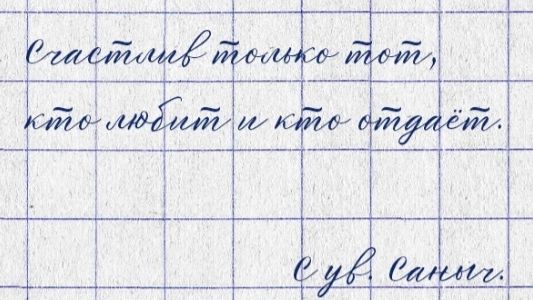 Счастлив только тот,
кто любит и кто отдаёт.
С ув. Саныч.